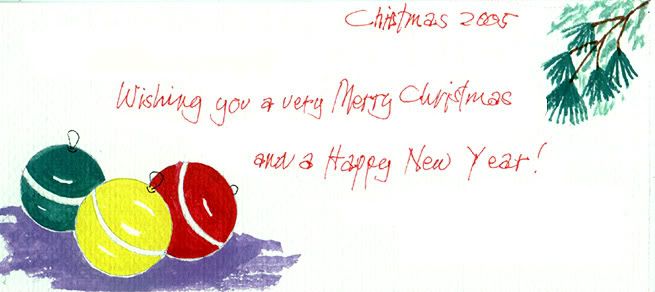 Chistmas 2005
Wishing you a very Merry Christmas
and a Happy New Year!